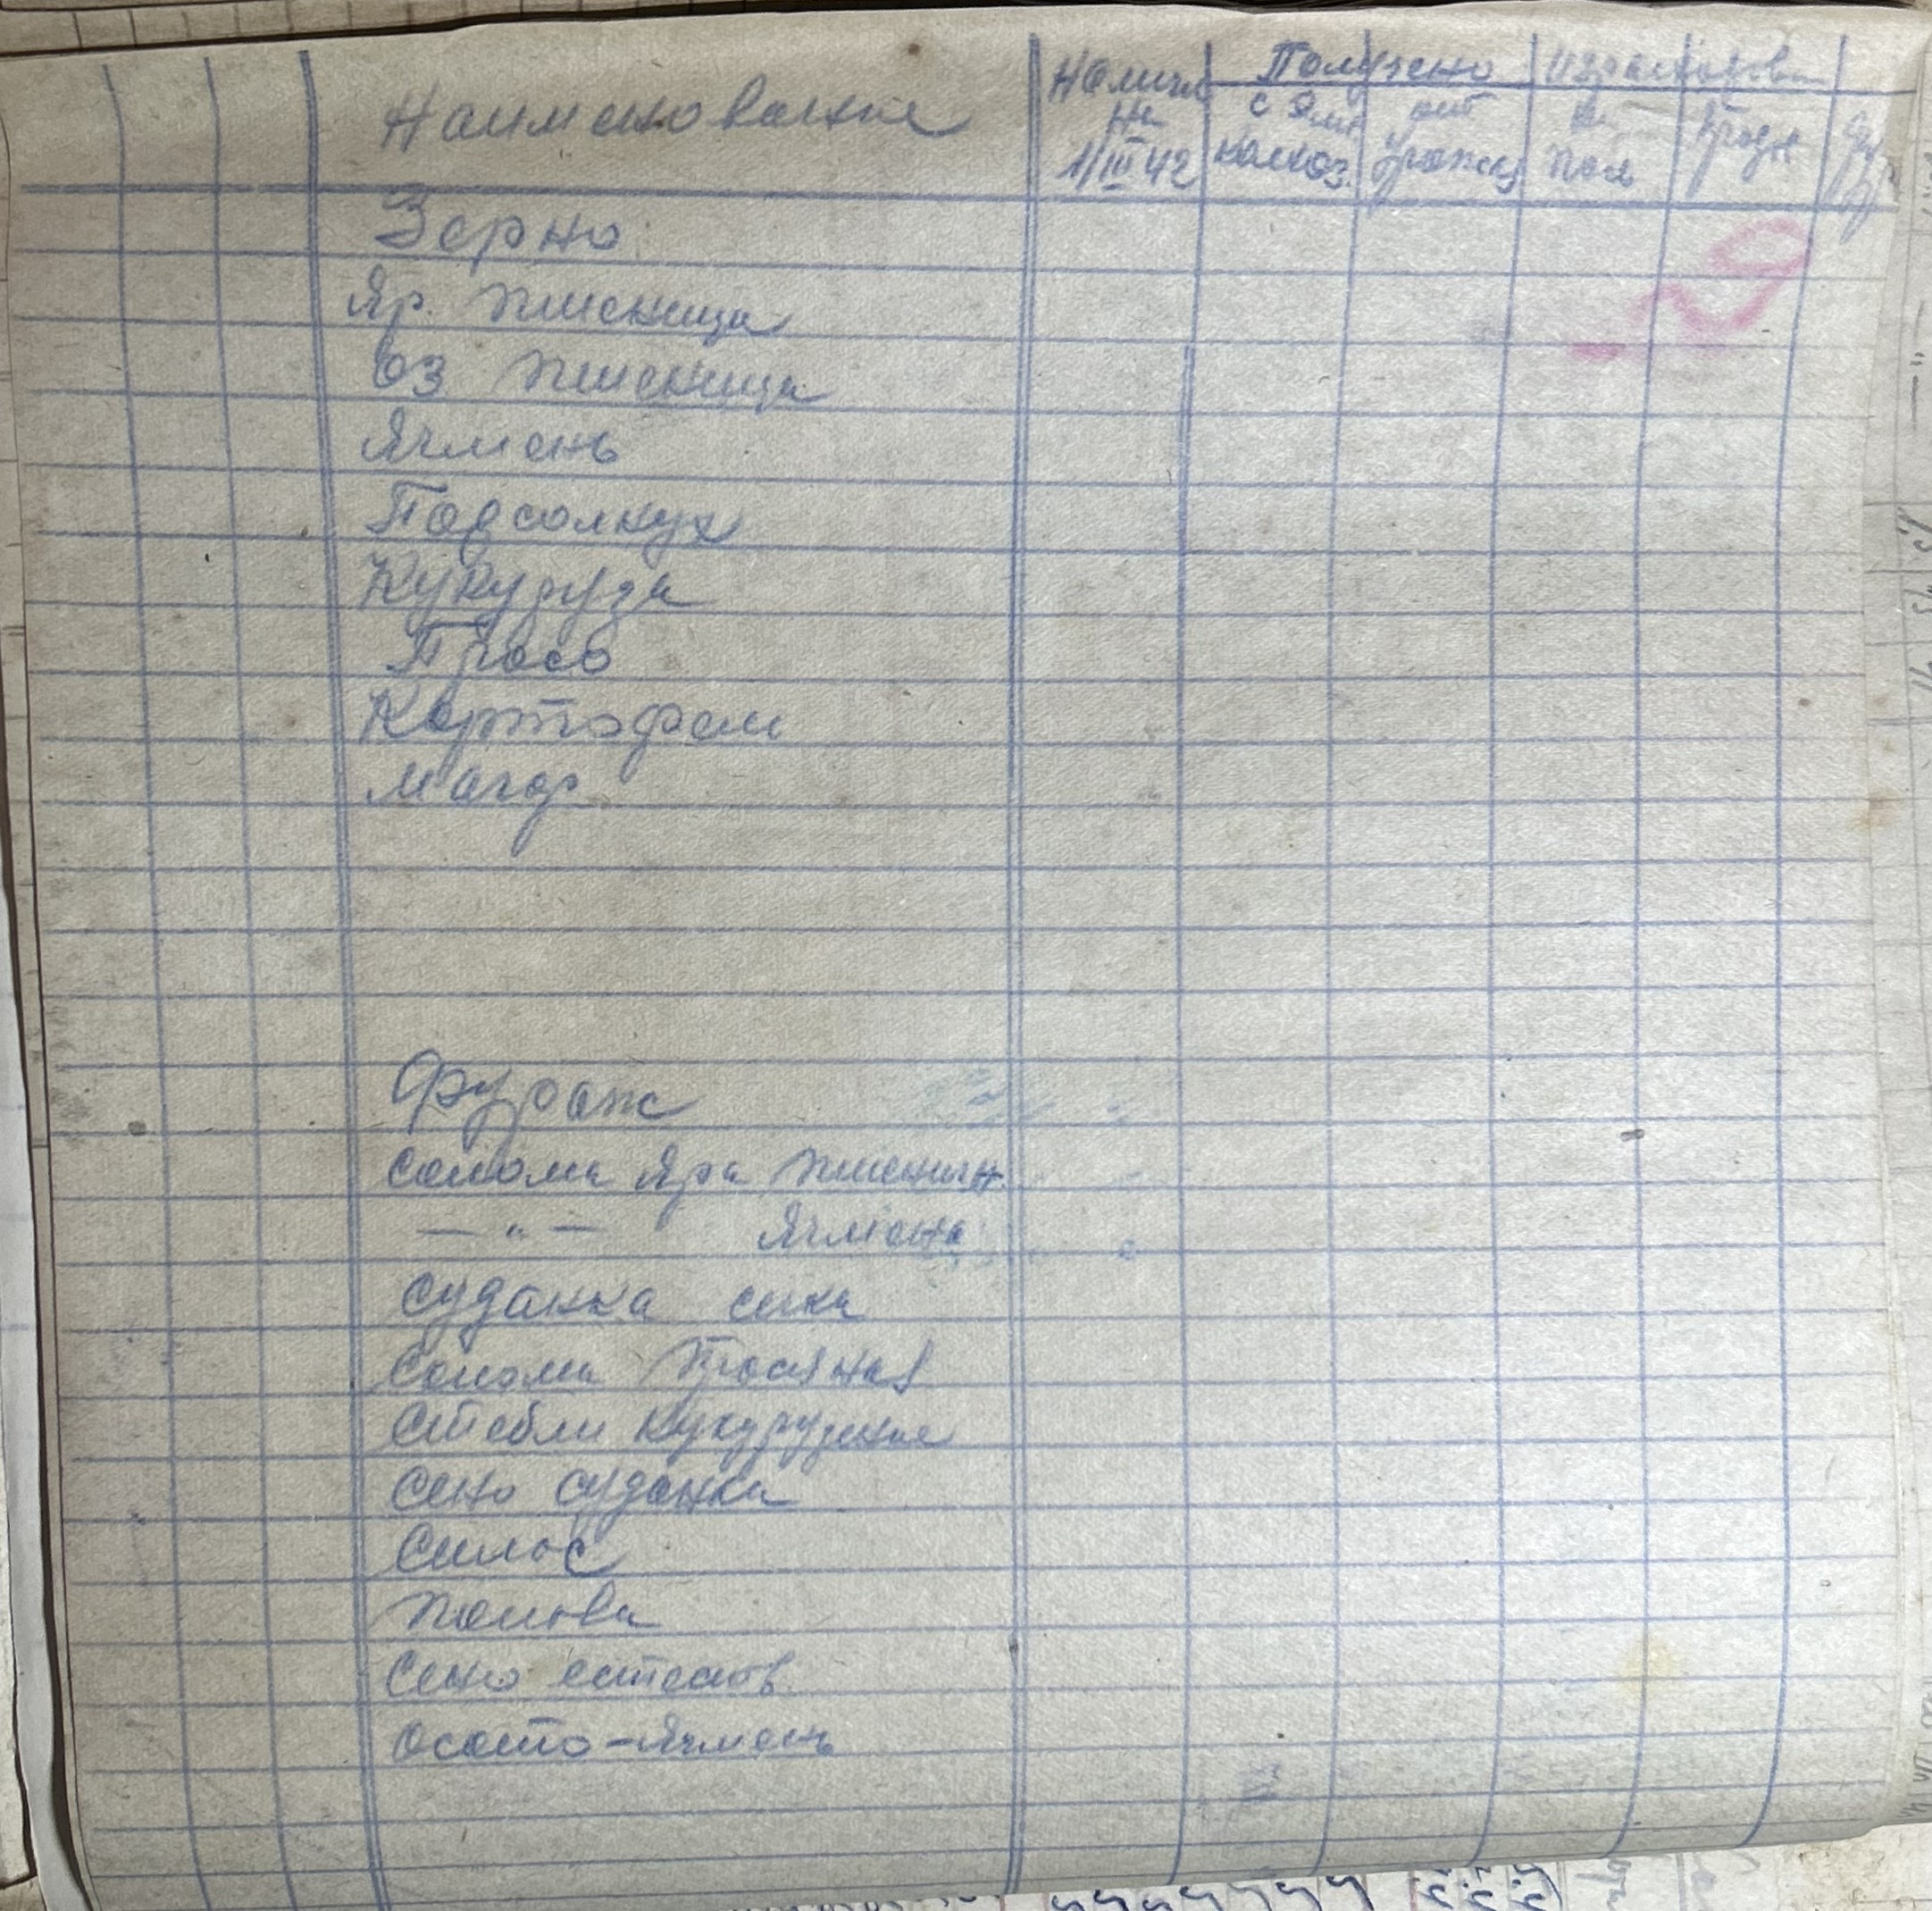 Наименование
Налич на 1/III 42
Получено
с Ями колхоз.
от
на пол
Продн
Зерно
Яр. пшеница
Оз пшеница
Ячмень
Подсолнух
Кукуруза
Просо
Картофели
Могар
Фураж
Солома Яра пшеничн.
— " — Ячменя
Суданка сена
Солома Просяная
Стебли кукурузные
Сено суданка
Силос
Полова
Сено естеств.
Осото-Ячмень